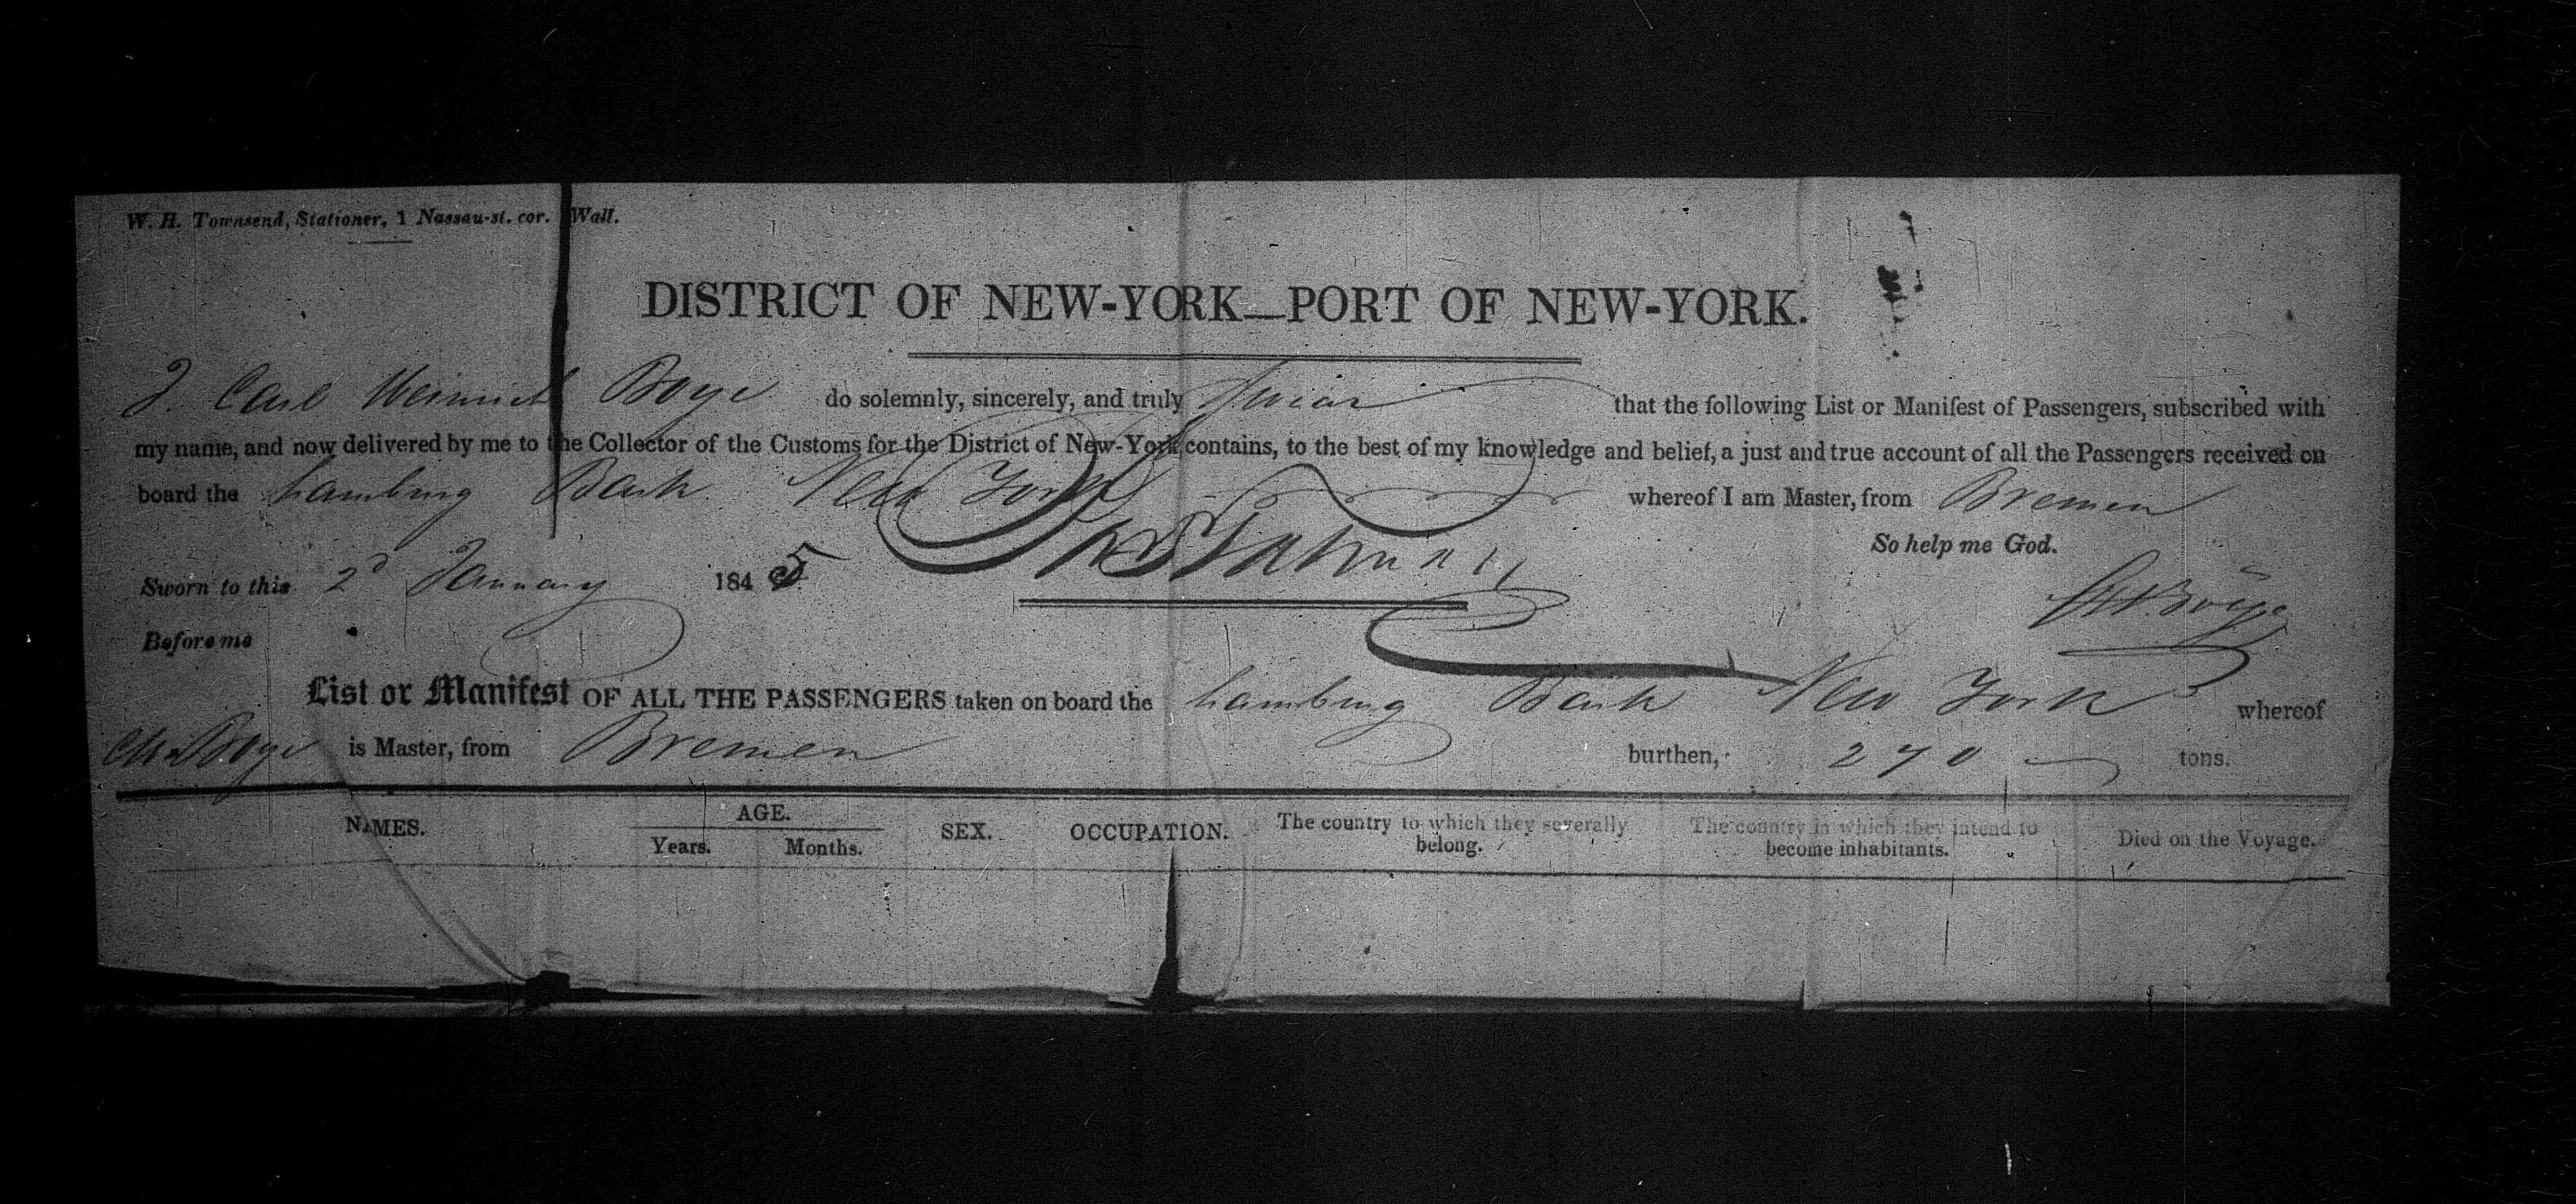 W. H. Townsend, Stationer, 1 Nassau-st. cor. Wall.
DISTRICT OF NEW-YORK—PORT OF NEW-YORK.
I. Carl Heinrich Boye do solemnly, sincerely, and truly swear that the following List or Manifest of Passengers, subscribed with
my name, and now delivered by me to the Collector of the Customs for the District of New-York contains, to the best of my knowledge and belief, a just and true account of all the Passengers received on
board the hamburg Bark New York whereof I am Master, from Bremen
So help me God.
Sworn to this 2d January 1845
Before me
List or Manifest OF ALL THE PASSENGERS taken on board the hamburg Bark New York whereof
Boye is Master, from Bremen burthen, 270 tons.
NAMES. AGE. SEX. OCCUPATION. The country to which they severally belong. The country in which they intend to become inhabitants. Died on the Voyage.
Years. Months.